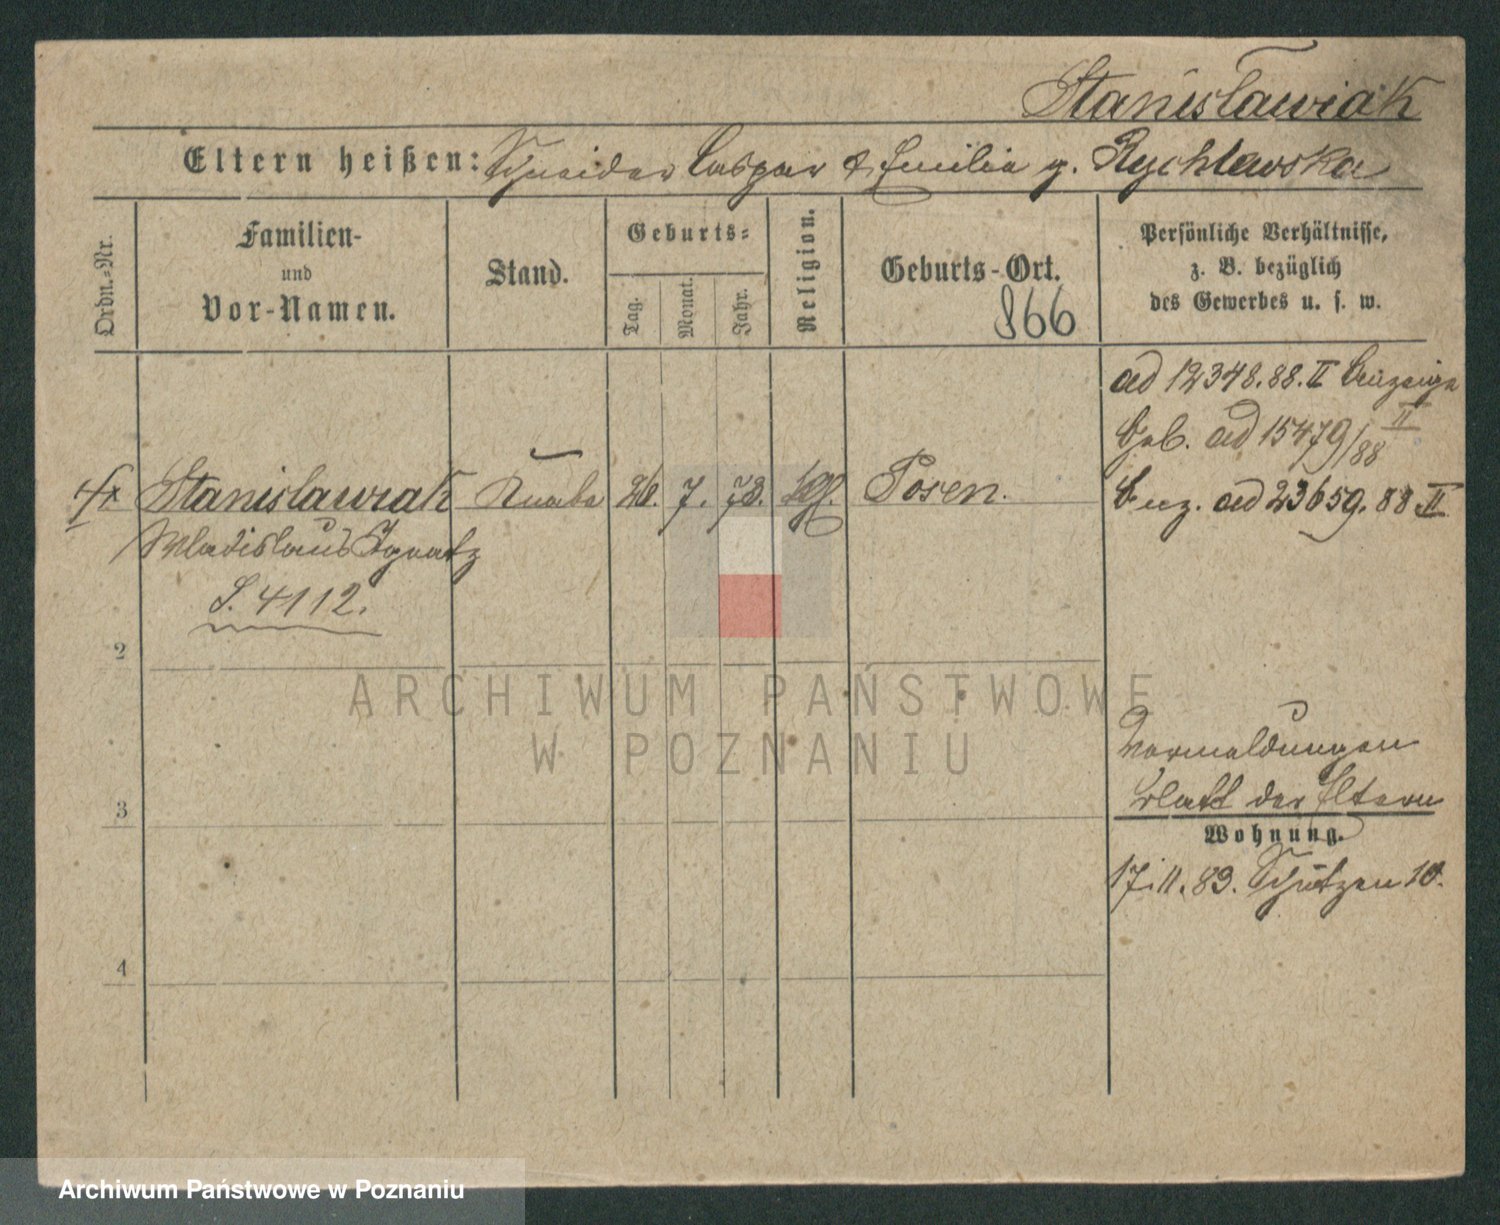 Stanisławiak
Eltern heißen: Schneider Caspar & Emilia g. Rychlewska
Ordn.-Nr.
Familien-
und
Vor-Namen.
Stand.
Geburts-
Tag.
Monat.
Jahr.
Religion.
Geburts-Ort.
866
Persönliche Verhältnisse,
z. B. bezüglich
des Gewerbes u. s. w.
ad 12348.88.II Anzeige
II
Geb. ad 15479/88
Anz. ad 23659.88.II
Stanislawiak Knabe 26. 7. 73. kgl. Posen.
Wladislaus Ignatz
S. 4112.
2
3
4
Vermeldungen
Blatt der Eltern
Wohnung.
17.11.89. Schützen 10.
ARCHIWUM PAŃSTWOWE
W POZNANIU
Archiwum Państwowe w Poznaniu